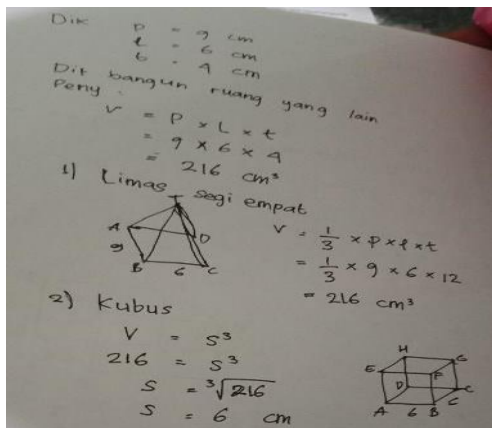 Dik p = 9 cm
l = 6 cm
t = 4 cm
Dit bangun ruang yang lain
Peny.
V = P × L × t
= 9 × 6 × 4
= 216 cm³
1) Limas segi empat
T
A
D
9
B 6 C
V = 1/3 × p × l × t
= 1/3 × 9 × 6 × 12
= 216 cm³
2) Kubus
V = s³
216 = s³
s = ³√216
s = 6 cm
H G
E F
D C
A 6 B